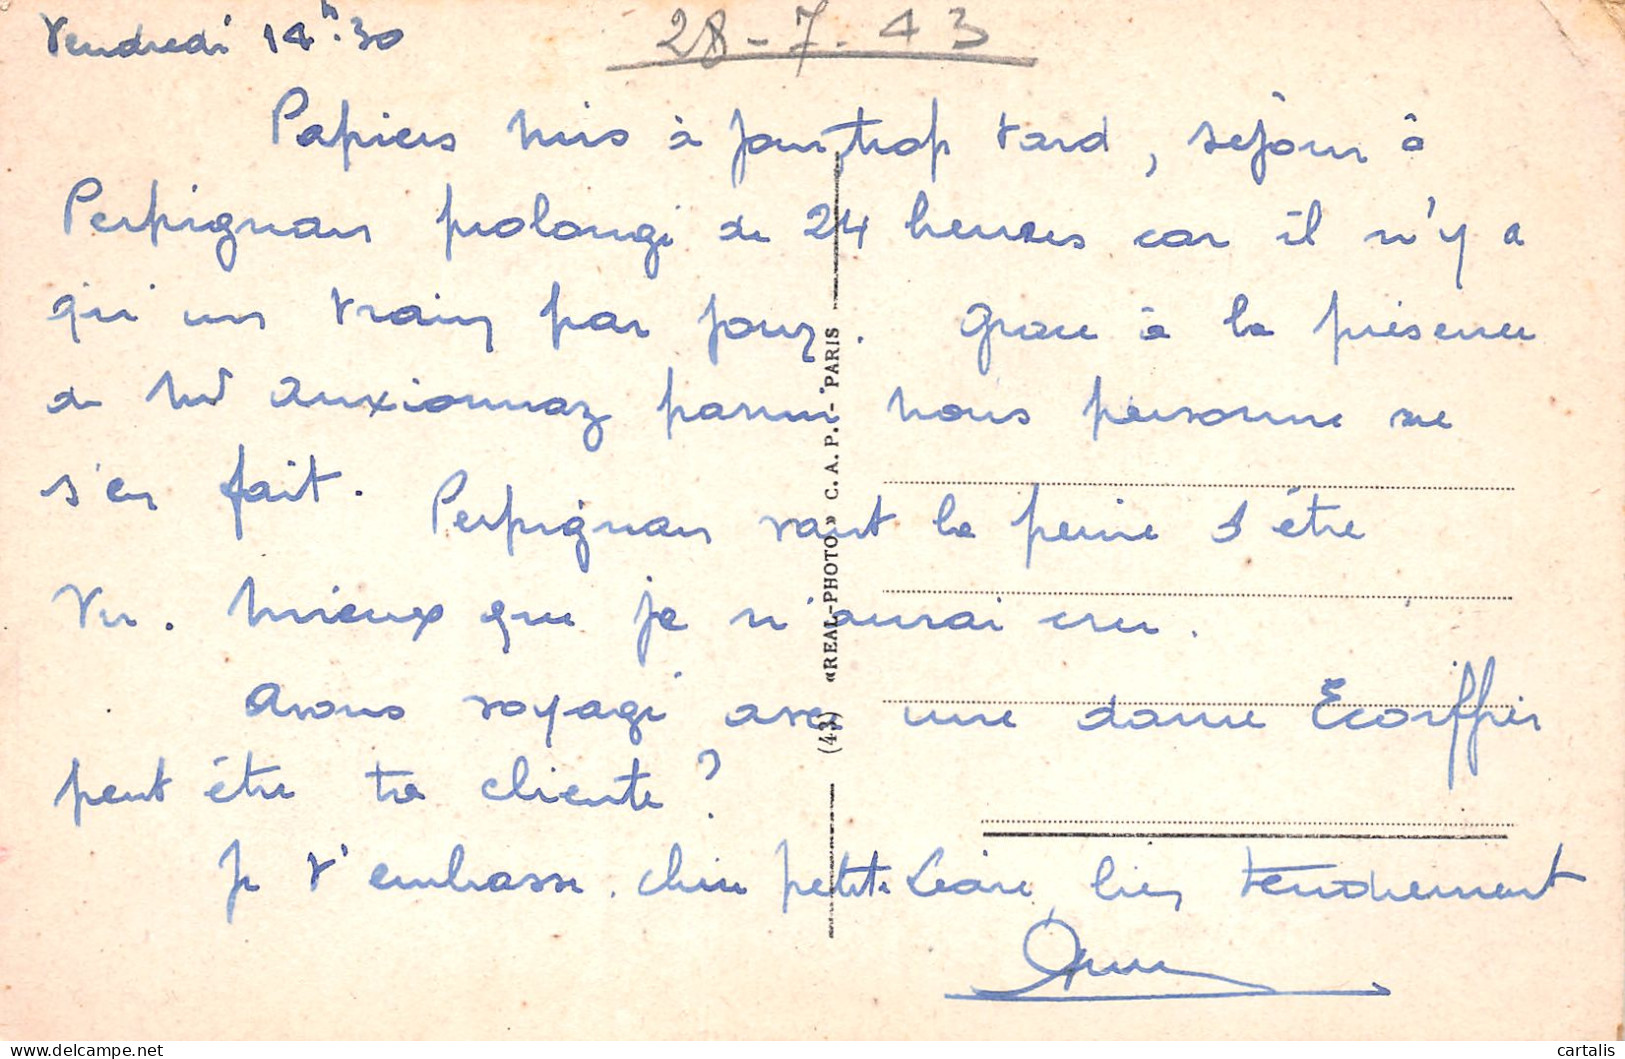 Vendredi 14h.30
28-7-43
Papiers mis à jour trop tard, séjour à
Perpignan prolongé de 24 heures car il n'y a
qu'un train par jour. Grace à la présence
de Md Anxionnaz parmi nous personne ne
s'en fait. Perpignan vaut la peine d'être
vu. Mieux que je n'aurai cru.
Avons voyagé avec une dame Ecoiffier
peut être ta cliente ?
Je t'embrasse. chère petite bien tendrement
(43) «REAL-PHOTO» C. A. P. - PARIS
delcampe.net
cartalis